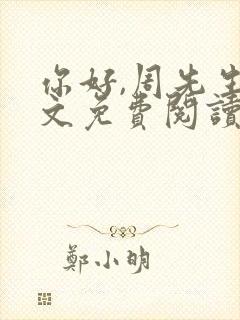 你好,周先生
文免費閱讀
鄭小明